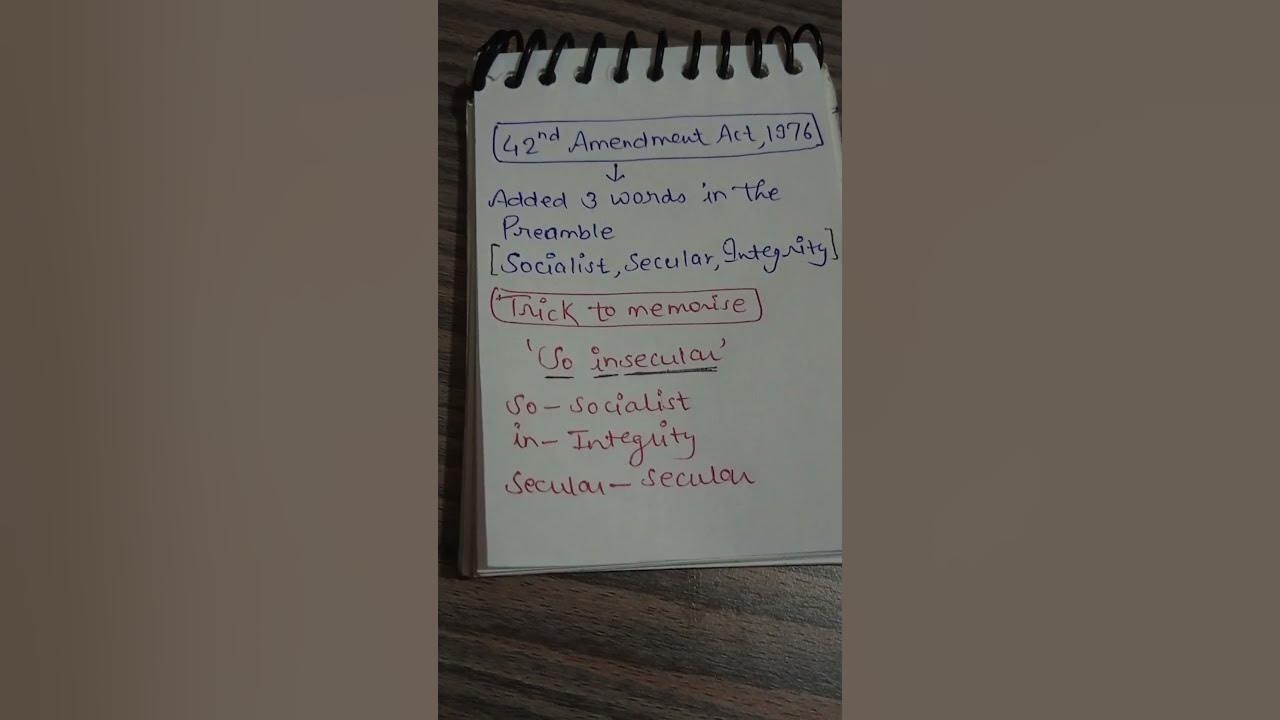 42nd Amendment Act, 1976
↓
Added 3 words in the
Preamble
[Socialist, Secular, Integrity]
Trick to memorise
'So insecular'
So - Socialist
in - Integrity
Secular - Secular